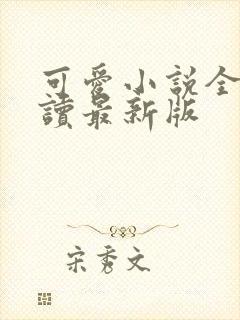 可愛小説全
讀最新版
宋秀文